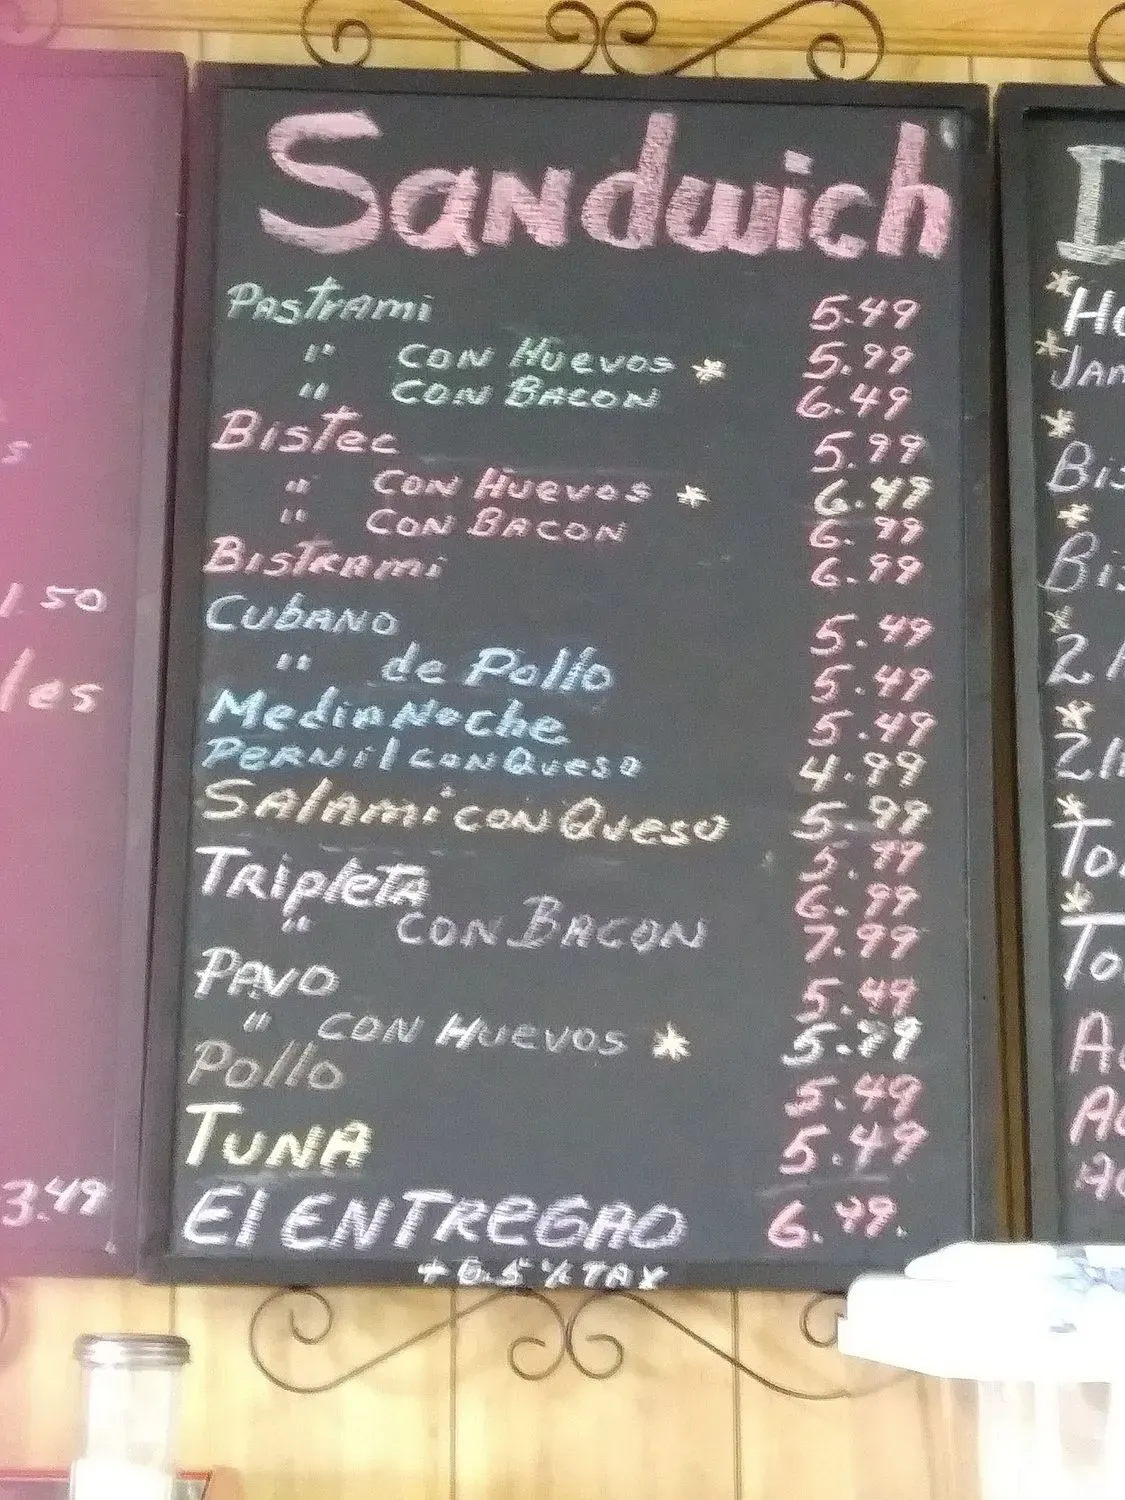 Sandwich
Pastrami 5.49
" CON Huevos * 5.99
" CON BACON 6.49
Bistec 5.99
" CON Huevos * 6.49
" CON BACON 6.99
Bistrami 6.99
Cubano 5.49
" de Pollo 5.49
Media Noche 5.49
Pernil con Queso 4.99
Salami con Queso 5.99
5.99
Tripleta 6.99
" CON BACON 7.99
Pavo 5.49
" CON Huevos * 5.99
Pollo 5.49
TUNA 5.49
El ENTREGAO 6.49.
+ 6.5% TAX
1.50
les
3.49